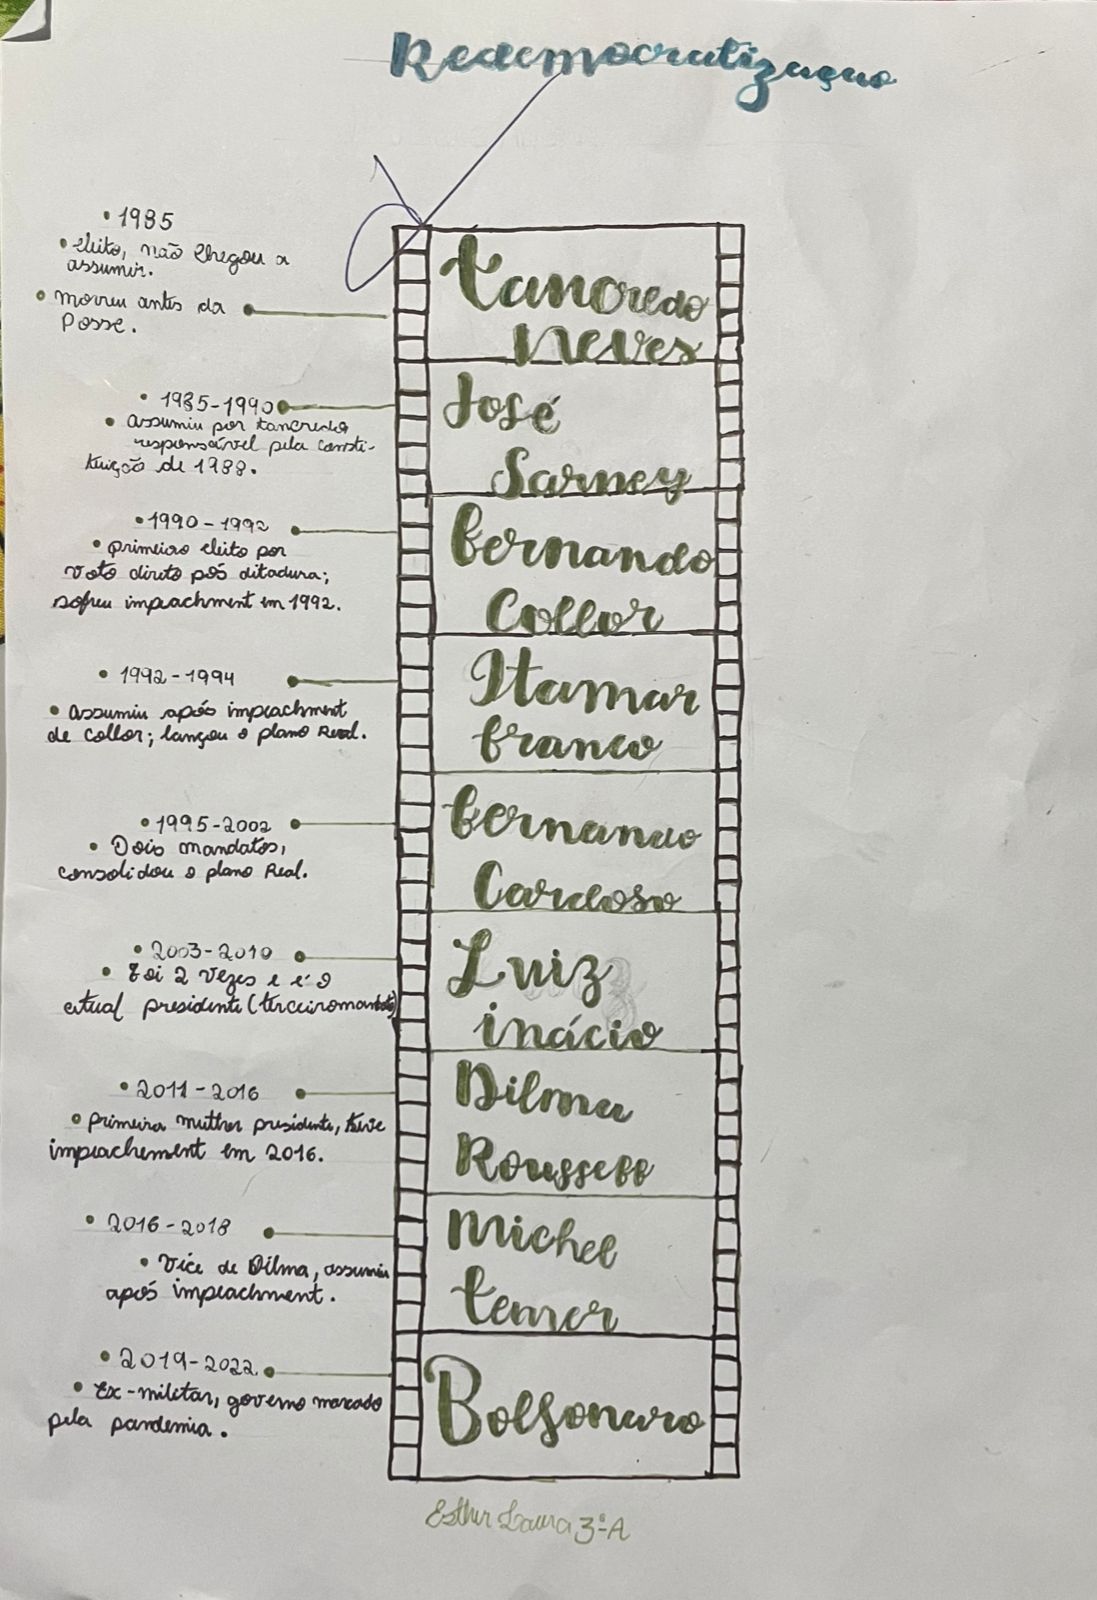 Redemocratização
• 1985
• eleito, não chegou a
assumir.
• morreu antes da
Posse.
tancredo
Neves
• 1985-1990
• assumiu por tancredo
responsável pela consti-
tuição de 1988.
José
Sarney
• 1990-1992
• primeiro eleito por
voto direto pós ditadura;
sofreu impeachment em 1992.
fernando
Collor
• 1992-1994
• assumiu após impeachment
de collor; lançou o plano Real.
Itamar
franco
• 1995-2002
• Dois mandatos,
consolidou o plano Real.
fernando
Cardoso
• 2003-2010
• Foi 2 vezes e é o
atual presidente (terceiro mandato)
Luiz
inácio
• 2011-2016
• primeira mulher presidente, teve
impeachement em 2016.
Dilma
Rousseff
• 2016-2018
• vice de Dilma, assumiu
após impeachment.
Michel
temer
• 2019-2022
• Ex-militar, governo marcado
pela pandemia.
Bolsonaro
Esther Laura 3ºA